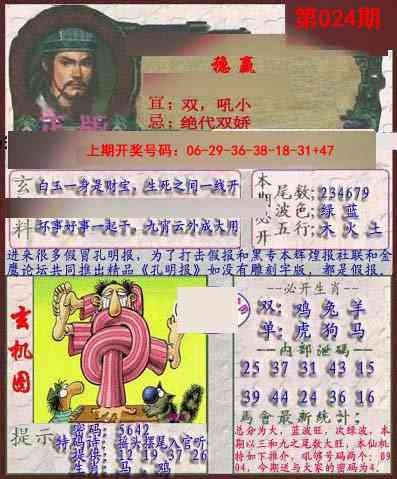 第024期
稳赢
宜：双，吼小
忌：绝代双娇
上期开奖号码：06-29-36-38-18-31+47
玄
白玉一身是财宝，生死之间一线开
料
坏事好事一起干。九霄云外成大用
本期必开
尾数：234679
波色：绿 蓝
五行：木 火 土
进来很多假冒孔明报，为了打击假报和黑专本辉煌报社联和金
鹰论坛共同推出精品《孔明报》如没有雕刻字版，都是假报，
玄机图
必开生肖
双：鸡 兔 羊
单：虎 狗 马
内部泄码
25 37 31 43 15
39 44 24 36 16
馬會最新統計：
总分为大，蓝波旺，次绿波，本
期以三和九之尾数大旺，本仙机
持如下推介，吼够号码两个：89
04，今期送与大家的密码为4.
提示
密码：5642
特码诗：摇头摆尾入官听
提供：12 19 37 26
生肖：马 鸡